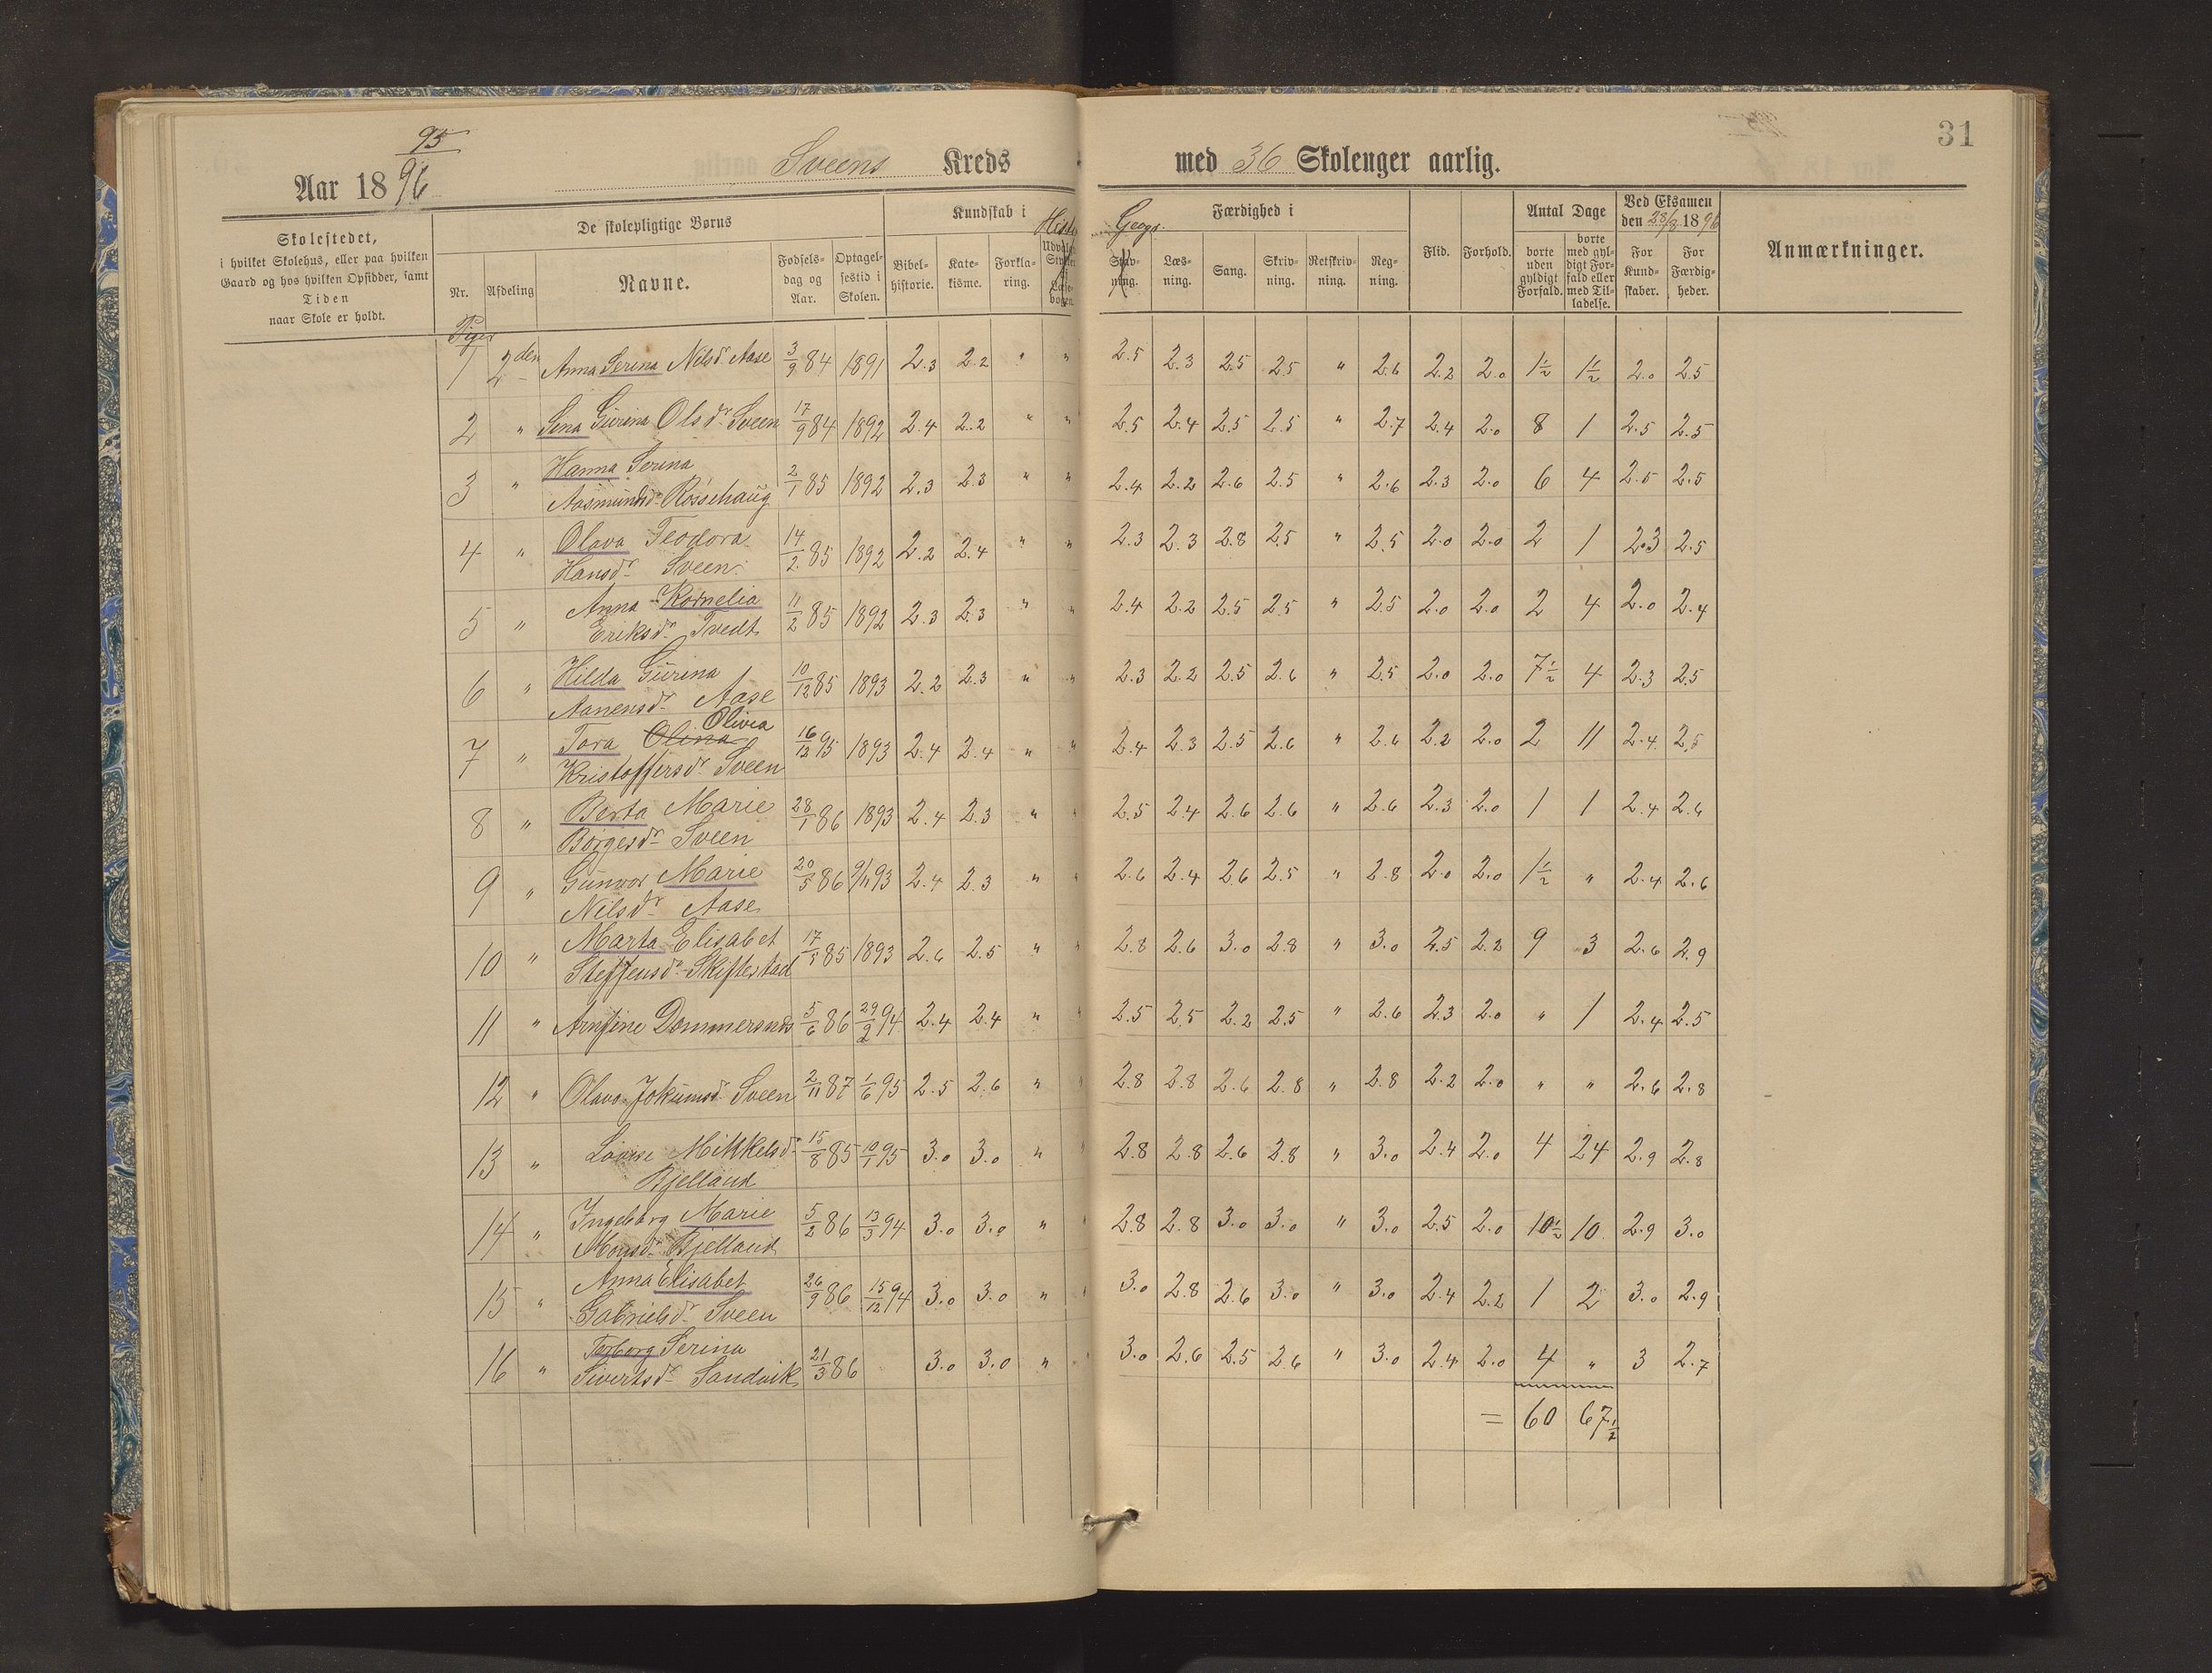 31
95
Aar 1896 Sveens Kreds med 36 Skolenger aarlig.
Skolestedet,
i hvilket Skolehus, eller paa hvilken
Gaard og hos hvilken Opsidder, samt
Tiden
naar Skole er holdt.
De skolepligtige Børns
Nr. Afdeling Navne. Fødselsdag og Aar. Optagelsestid i Skolen.
Kundskab i
Bibelhistorie. Katekisme. Forklaring. Hist.
Færdighed i
Geogr. Læsning. Sang. Skrivning. Retskrivning. Regning.
Flid. Forhold.
Antal Dage
borte uden gyldigt Forfald. borte med gyldigt Forfald eller med Tilladelse.
Ved Eksamen
den 28/3 1896
For Kundskaber. For Færdigheder.
Anmærkninger.
Piger
1 2den Anna Serina Nilsdr Aase 3/9 84 1891 2.3 2.2 " " 2.5 2.3 2.5 2.5 " 2.6 2.2 2.0 1½ 1½ 2.0 2.5
2 " Sena Gurina Olsdr. Sveen 17/9 84 1892 2.4 2.2 " " 2.5 2.4 2.5 2.5 " 2.7 2.4 2.0 8 1 2.5 2.5
3 " Hanna Serina
Aasmundsdr Rossehaug 2/1 85 1892 2.3 2.3 " " 2.4 2.2 2.6 2.5 " 2.6 2.3 2.0 6 4 2.5 2.5
4 " Olava Teodora
Hansdr Sveen 14/2 85 1892 2.2 2.4 " " 2.3 2.3 2.8 2.5 " 2.5 2.0 2.0 2 1 2.3 2.5
5 " Anna Kornelia
Eriksdr Tvedt 11/2 85 1892 2.3 2.3 " " 2.4 2.2 2.5 2.5 " 2.5 2.0 2.0 2 4 2.0 2.4
6 " Hilda Gurina
Aanensdr Aase 10/12 85 1893 2.2 2.3 " " 2.3 2.2 2.5 2.6 " 2.5 2.0 2.0 7½ 4 2.3 2.5
Olivia
7 " Tora Olina
Kristoffersdr Sveen 16/12 95 1893 2.4 2.4 " " 2.4 2.3 2.5 2.6 " 2.6 2.2 2.0 2 11 2.4 2.5
8 " Berta Marie
Børgesdr Sveen 28/1 86 1893 2.4 2.3 " " 2.5 2.4 2.6 2.6 " 2.6 2.3 2.0 1 1 2.4 2.6
9 " Gunvor Marie
Nilsdr Aase 20/5 86 9/11 93 2.4 2.3 " " 2.6 2.4 2.6 2.5 " 2.8 2.0 2.0 1½ " 2.4 2.6
10 " Marta Elisabet
Steffensdr Skiftestad 17/5 85 1893 2.6 2.5 " " 2.8 2.6 3.0 2.8 " 3.0 2.5 2.2 9 3 2.6 2.9
11 " Arnfine Dommersnes 5/6 86 29/2 94 2.4 2.4 " " 2.5 2.5 2.2 2.5 " 2.6 2.3 2.0 " 1 2.4 2.5
12 " Olava Jokumsd. Sveen 2/11 87 1/6 95 2.5 2.6 " " 2.8 2.8 2.6 2.8 " 2.8 2.2 2.0 " " 2.6 2.8
13 " Lovise Mikkelsdr
Bjelland 15/8 85 10/1 95 3.0 3.0 " " 2.8 2.8 2.6 2.8 " 3.0 2.4 2.0 4 24 2.9 2.8
14 " Ingeborg Marie
Monsdr Bjelland 5/2 86 13/3 94 3.0 3.0 " " 2.8 2.8 3.0 3.0 " 3.0 2.5 2.0 10½ 10 2.9 3.0
15 " Anna Elisabet
Gabrielsdr Sveen 26/9 86 15/12 94 3.0 3.0 " " 3.0 2.8 2.6 3.0 " 3.0 2.4 2.2 1 2 3.0 2.9
16 " Torborg Serina
Sivertsdr Sandvik 21/3 86 3.0 3.0 " " 3.0 2.6 2.5 2.6 " 3.0 2.4 2.0 4 " 3 2.7
= 60 67½